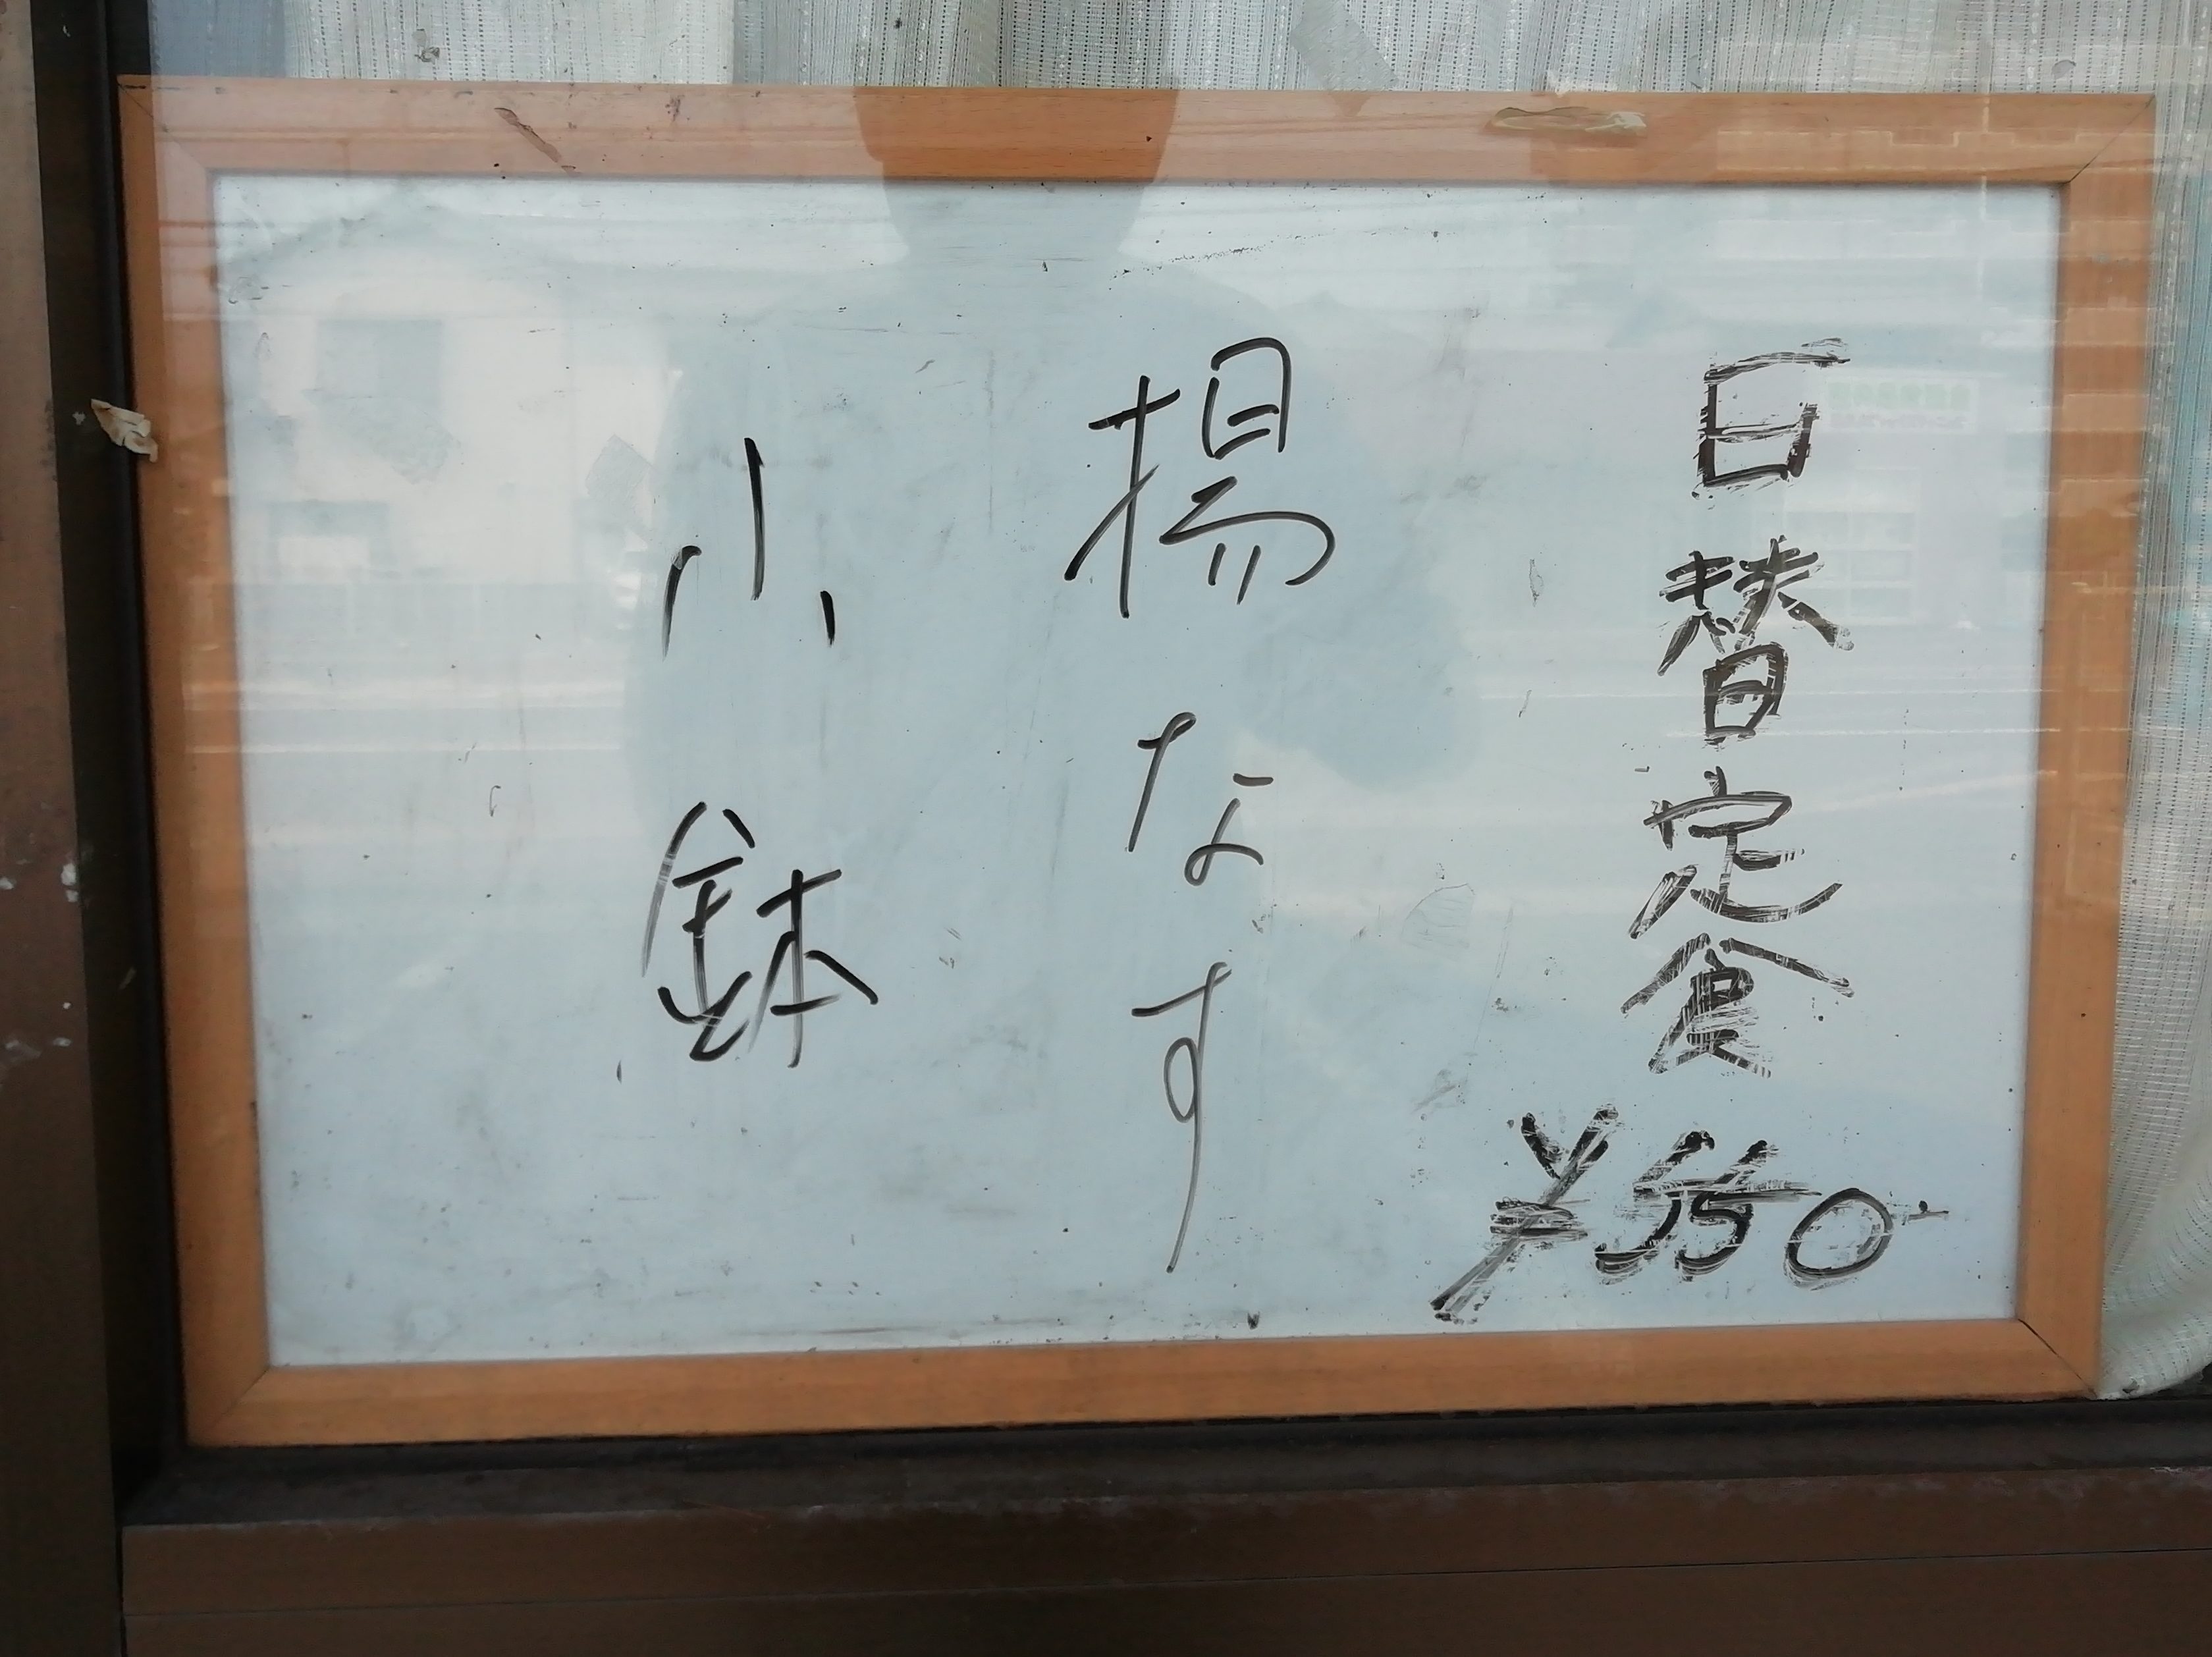 日替定食
¥550-
揚なす
小鉢